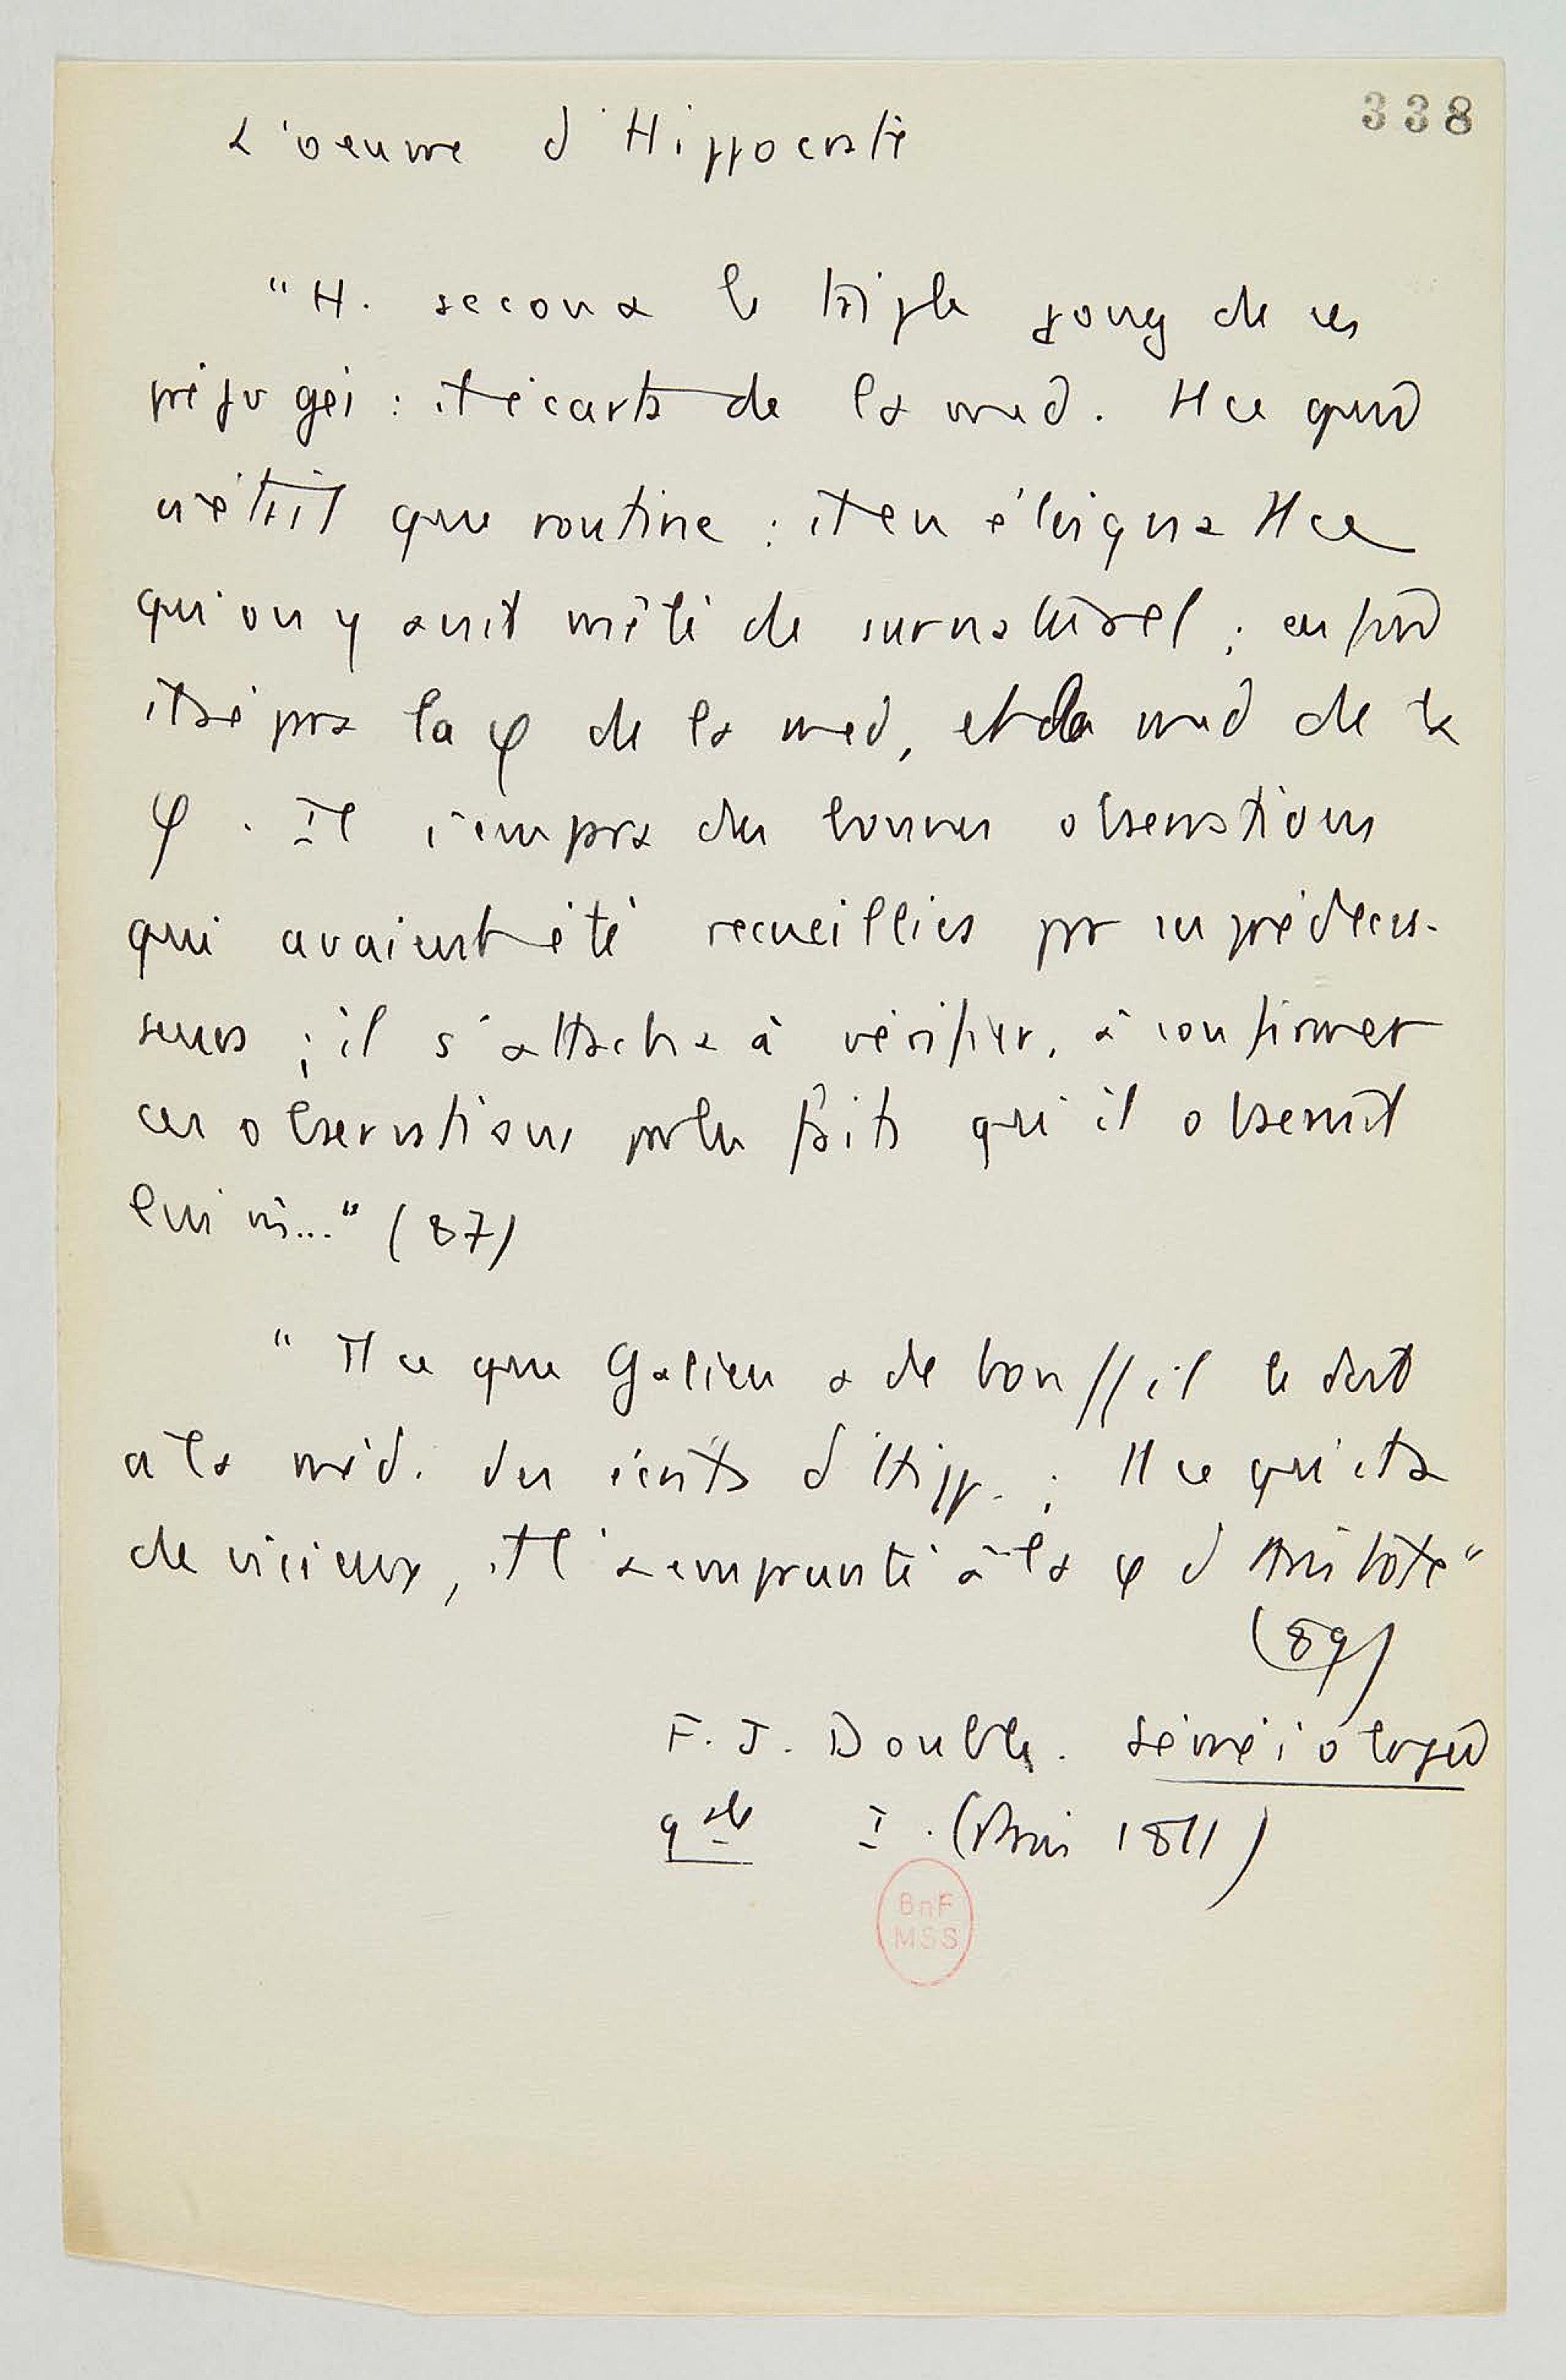 338
L'oeuvre d'Hippocrate
"H. secoua le triple joug de ces
préjugés : il écarta de la med. tt ce qui
n'était que routine : il en éloigna tt ce
qu'on y avait mêlé de surnaturel ; enfin
il sépara la φ de la med, et la med de la
φ. Il s'empara des bonnes observations
qui avaient été recueillies par ses prédéces-
seurs ; il s'attacha à vérifier, à confirmer
ces observations par les faits qu'il observait
lui m̂..." (87)
"Tt ce que Galien a de bon // il le doit
à la méd. des écrits d'Hipp. ; tt ce qu'il a
de vicieux, il l'a emprunté à la φ d'Aristote"
(89)
F. J. Double. Séméiologie
gale I. (Paris 1811)
BnF
MSS